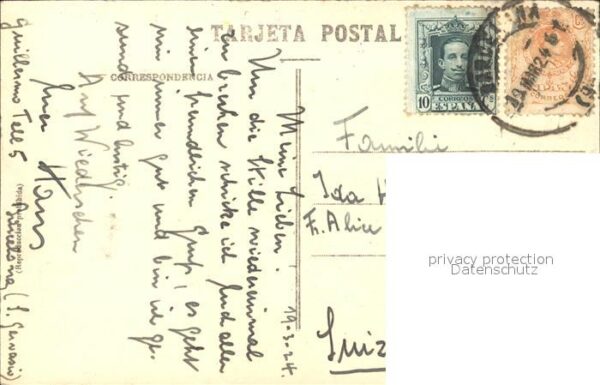 TARJETA POSTAL
CORRESPONDENCIA
10 CORREOS
ESPAÑA
BARCELONA
19 MAR 24
19-3-24.
Meine Lieben.
Um die Stille wiedereinmal
zu brechen schicke ich Euch allen
einen freundlichen Gruß; es geht
mir immer gut und bin ich ge-
sund und lustig.
Auf Wiedersehen
Euer Hans
Guillermo Tell 5
Barcelona (S. Gervasio)
Familie
Ida
Z. Alice
Suiz
privacy protection
Datenschutz